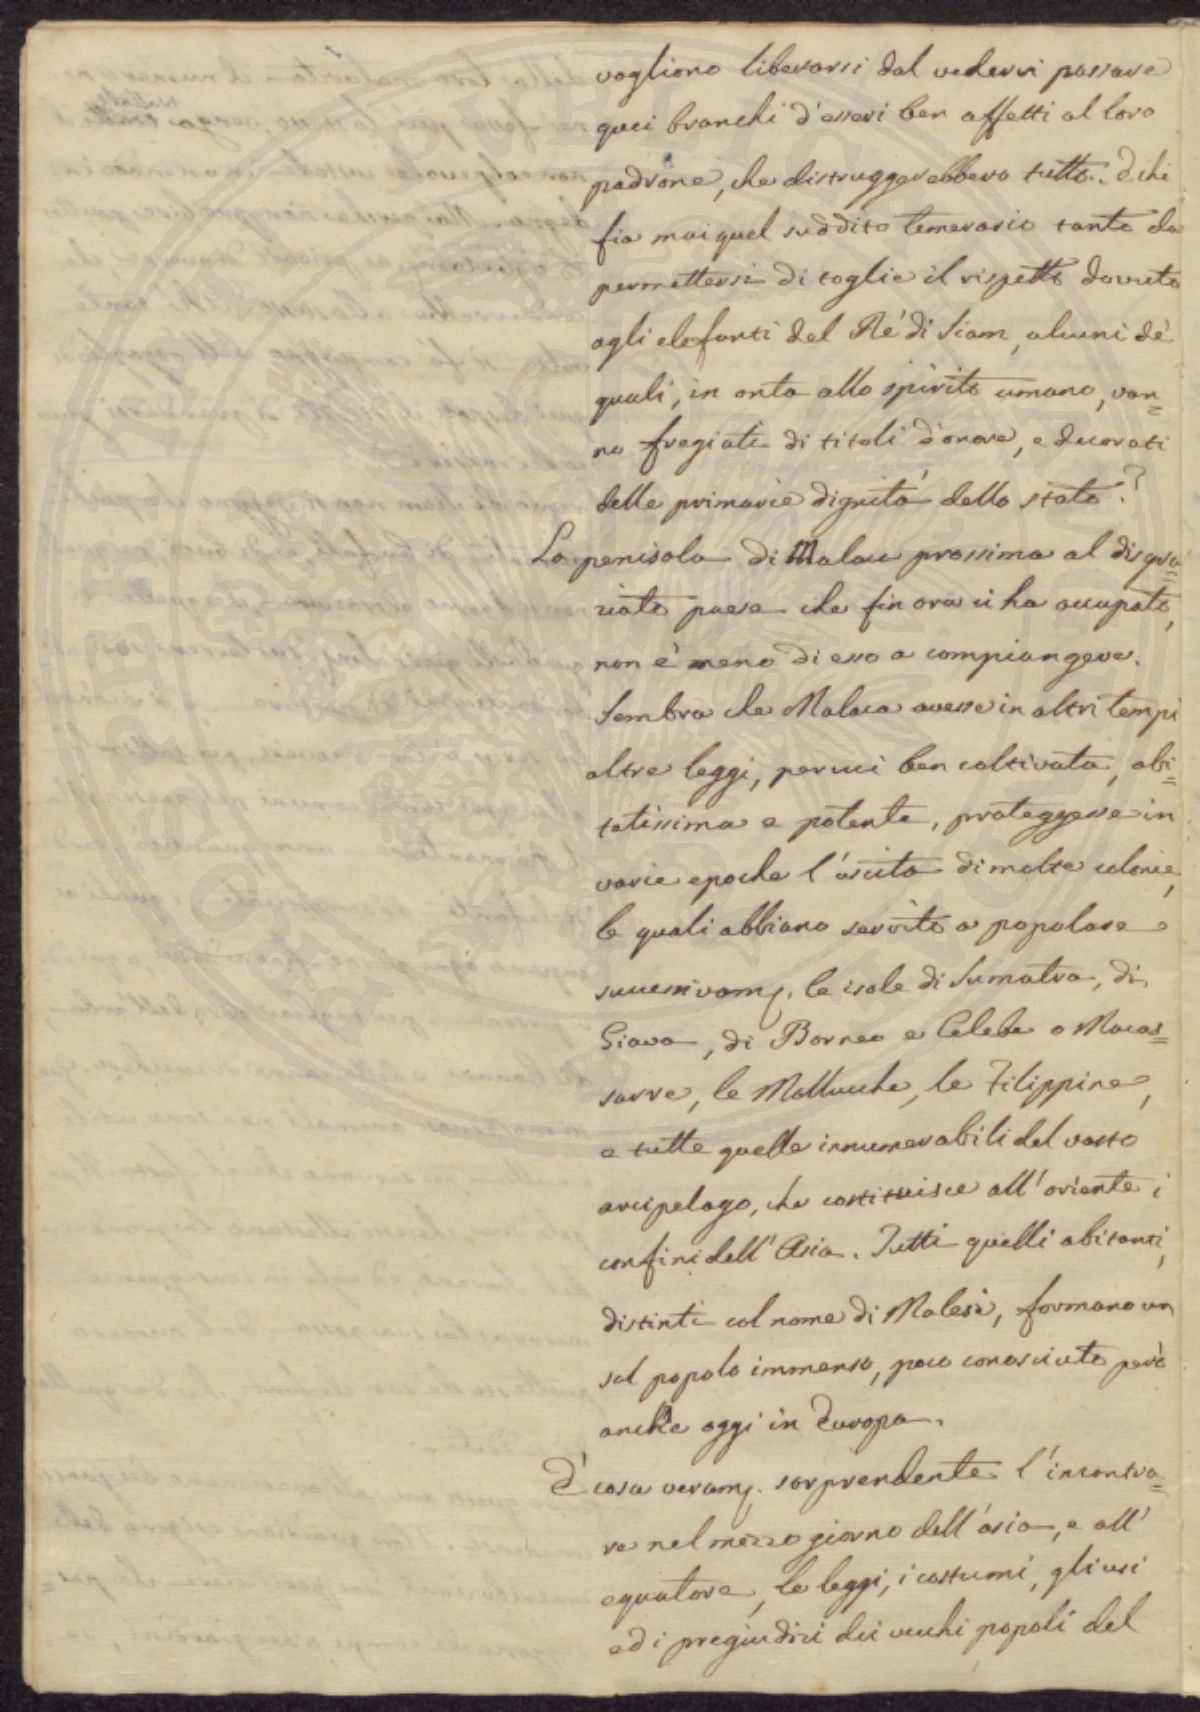 vogliono liberarsi dal vedervi passare
quei branchi d'esseri ben affetti al loro
padrone, che distruggerebbero tutto. E chi
fia mai quel suddito temerario tanto da
permettersi di toglie il rispetto dovuto
agli elefanti del Ré di Siam, alcuni de'
quali, in onta allo spirito umano, van=
no fregiati di titoli d'onore, e decorati
delle primarie dignità dello stato?
La penisola di Malaca prossima al disgra=
ziato paese che fin ora ci ha occupato,
non è meno di esso a compiangere.
Sembra che Malaca avesse in altri tempi
altre leggi, per cui ben coltivata, abi=
tatissima e potente, proteggesse in
varie epoche l'uscita di molte colonie,
le quali abbiano servito a popolare
successivam. le isole di Sumatra, di
Giava, di Borneo e Celebe o Macas=
sarre, le Mollucche, le Filippine,
e tutte quelle innumerabili del vasto
arcipelago, che costituisce all'oriente i
confini dell'Asia. Tutti quelli abitanti,
distinti col nome di Malesi, formano un
sol popolo immenso, poco conosciuto però
anche oggi in Europa.
E' cosa veram. sorprendente l'incontra=
re nel mezzo giorno dell'asia, e all'
equatore, le leggi, i costumi, gli usi
ed i pregiudizi dei vecchi popoli del